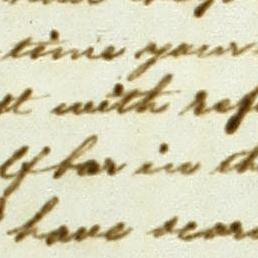 time your
st with ref
lf bar in th
have scar